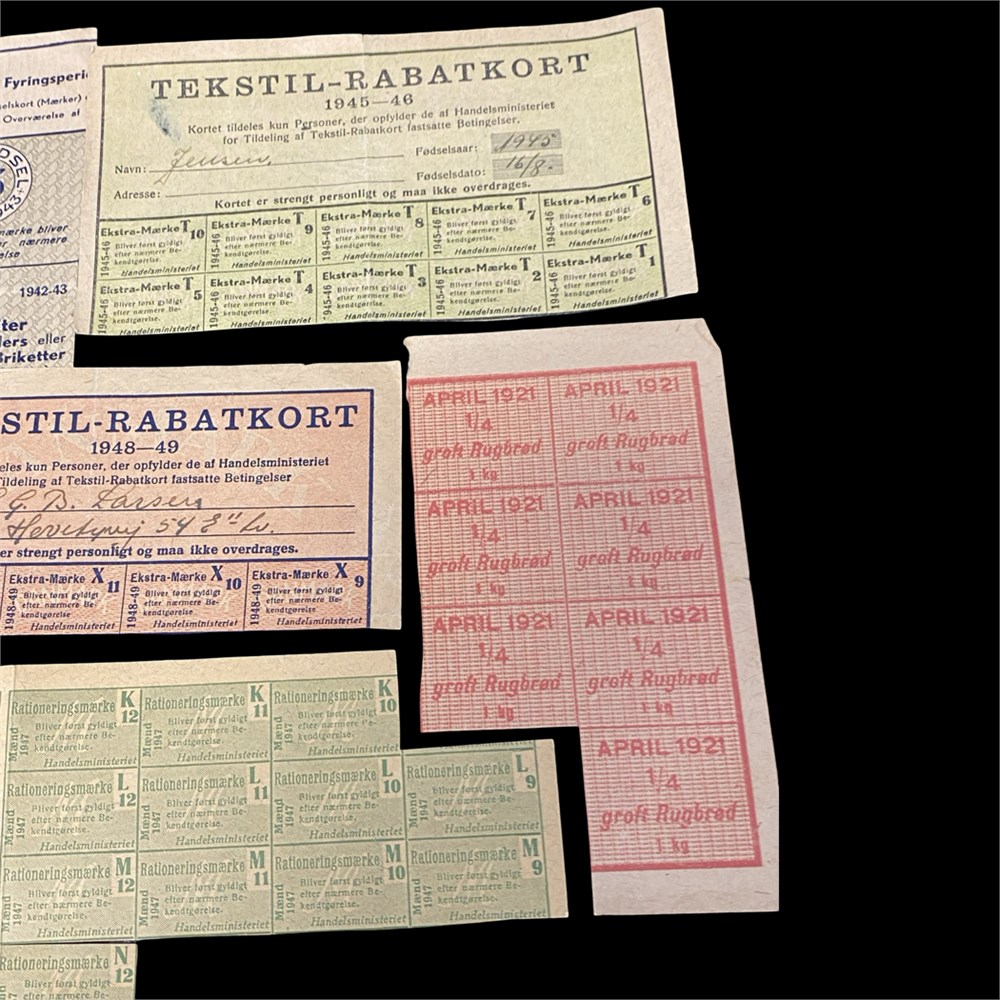 Fyringsperi
elskort (Mærker)
Overværelse af
DSEL
1943
mærke bliver
r nærmere
else
1942-43
ter
lers eller
Briketter
TEKSTIL-RABATKORT
1945—46
Kortet tildeles kun Personer, der opfylder de af Handelsministeriet
for Tildeling af Tekstil-Rabatkort fastsatte Betingelser.
Navn: Jensen, Fødselsaar: 1945
Fødselsdato: 16/8.
Adresse:
Kortet er strengt personligt og maa ikke overdrages.
Ekstra-Mærke T 10
1945-46
Bliver først gyldigt
efter nærmere Be-
kendtgørelse.
Handelsministeriet
Ekstra-Mærke T 9
1945-46
Bliver først gyldigt
efter nærmere Be-
kendtgørelse.
Handelsministeriet
Ekstra-Mærke T 8
1945-46
Bliver først gyldigt
efter nærmere Be-
kendtgørelse.
Handelsministeriet
Ekstra-Mærke T 7
1945-46
Bliver først gyldigt
efter nærmere Be-
kendtgørelse.
Handelsministeriet
Ekstra-Mærke T 6
1945-46
Bliver først gyldigt
efter nærmere Be-
kendtgørelse.
Handelsministeriet
Ekstra-Mærke T 5
1945-46
Bliver først gyldigt
efter nærmere Be-
kendtgørelse.
Handelsministeriet
Ekstra-Mærke T 4
1945-46
Bliver først gyldigt
efter nærmere Be-
kendtgørelse.
Handelsministeriet
Ekstra-Mærke T 3
1945-46
Bliver først gyldigt
efter nærmere Be-
kendtgørelse.
Handelsministeriet
Ekstra-Mærke T 2
1945-46
Bliver først gyldigt
efter nærmere Be-
kendtgørelse.
Handelsministeriet
Ekstra-Mærke T 1
1945-46
Bliver først gyldigt
efter nærmere Be-
kendtgørelse.
Handelsministeriet
STIL-RABATKORT
1948—49
eles kun Personer, der opfylder de af Handelsministeriet
Tildeling af Tekstil-Rabatkort fastsatte Betingelser
G. B. Larsen
54
er strengt personligt og maa ikke overdrages.
Ekstra-Mærke X 11
1948-49
Bliver først gyldigt
efter nærmere Be-
kendtgørelse
Handelsministeriet
Ekstra-Mærke X 10
1948-49
Bliver først gyldigt
efter nærmere Be-
kendtgørelse.
Handelsministeriet
Ekstra-Mærke X 9
1948-49
Bliver først gyldigt
efter nærmere Be-
kendtgørelse.
Handelsministeriet
APRIL 1921
1/4
groft Rugbrød
1 kg
APRIL 1921
1/4
groft Rugbrød
1 kg
APRIL 1921
1/4
groft Rugbrød
1 kg
APRIL 1921
1/4
groft Rugbrød
1 kg
APRIL 1921
1/4
groft Rugbrød
1 kg
APRIL 1921
1/4
groft Rugbrød
1 kg
APRIL 1921
1/4
groft Rugbrød
1 kg
Rationeringsmærke K 12
Mænd 1947
Bliver først gyldigt
efter nærmere Be-
kendtgørelse.
Handelsministeriet
Rationeringsmærke K 11
Mænd 1947
Bliver først gyldigt
efter nærmere Be-
kendtgørelse.
Handelsministeriet
Rationeringsmærke K 10
Mænd 1947
Bliver først gyldigt
efter nærmere Be-
kendtgørelse.
Handelsministeriet
Rationeringsmærke L 12
Mænd 1947
Bliver først gyldigt
efter nærmere Be-
kendtgørelse.
Handelsministeriet
Rationeringsmærke L 11
Mænd 1947
Bliver først gyldigt
efter nærmere Be-
kendtgørelse.
Handelsministeriet
Rationeringsmærke L 10
Mænd 1947
Bliver først gyldigt
efter nærmere Be-
kendtgørelse.
Handelsministeriet
Rationeringsmærke L 9
Mænd 1947
Bliver først gyldigt
efter nærmere Be-
kendtgørelse.
Handelsministeriet
Rationeringsmærke M 12
Mænd 1947
Bliver først gyldigt
efter nærmere Be-
kendtgørelse.
Handelsministeriet
Rationeringsmærke M 11
Mænd 1947
Bliver først gyldigt
efter nærmere Be-
kendtgørelse.
Handelsministeriet
Rationeringsmærke M 10
Mænd 1947
Bliver først gyldigt
efter nærmere Be-
kendtgørelse.
Handelsministeriet
Rationeringsmærke M 9
Mænd 1947
Bliver først gyldigt
efter nærmere Be-
kendtgørelse.
Handelsministeriet
Rationeringsmærke N 12
Bliver først gyldigt
efter nærmere Be-